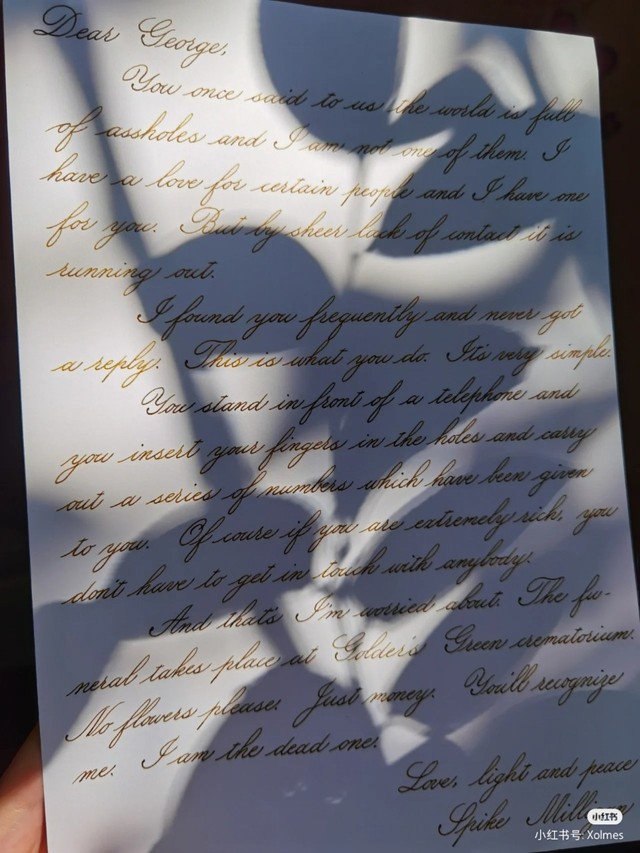 Dear George,
You once said to us the world is full
of assholes and I am not one of them. I
have a love for certain people and I have one
for you. But by sheer lack of contact it is
running out.
I found you frequently and never got
a reply. This is what you do. It's very simple.
You stand in front of a telephone and
you insert your fingers in the holes and carry
out a series of numbers which have been given
to you. Of coure if you are extremely rich, you
don't have to get in touch with anybody.
And that's I'm worried about. The fu-
neral takes place at Golder's Green crematorium.
No flowers please. Just money. You'll recognize
me. I am the dead one.
Love, light and peace
Spike Milligan
小红书
小红书号: Xolmes